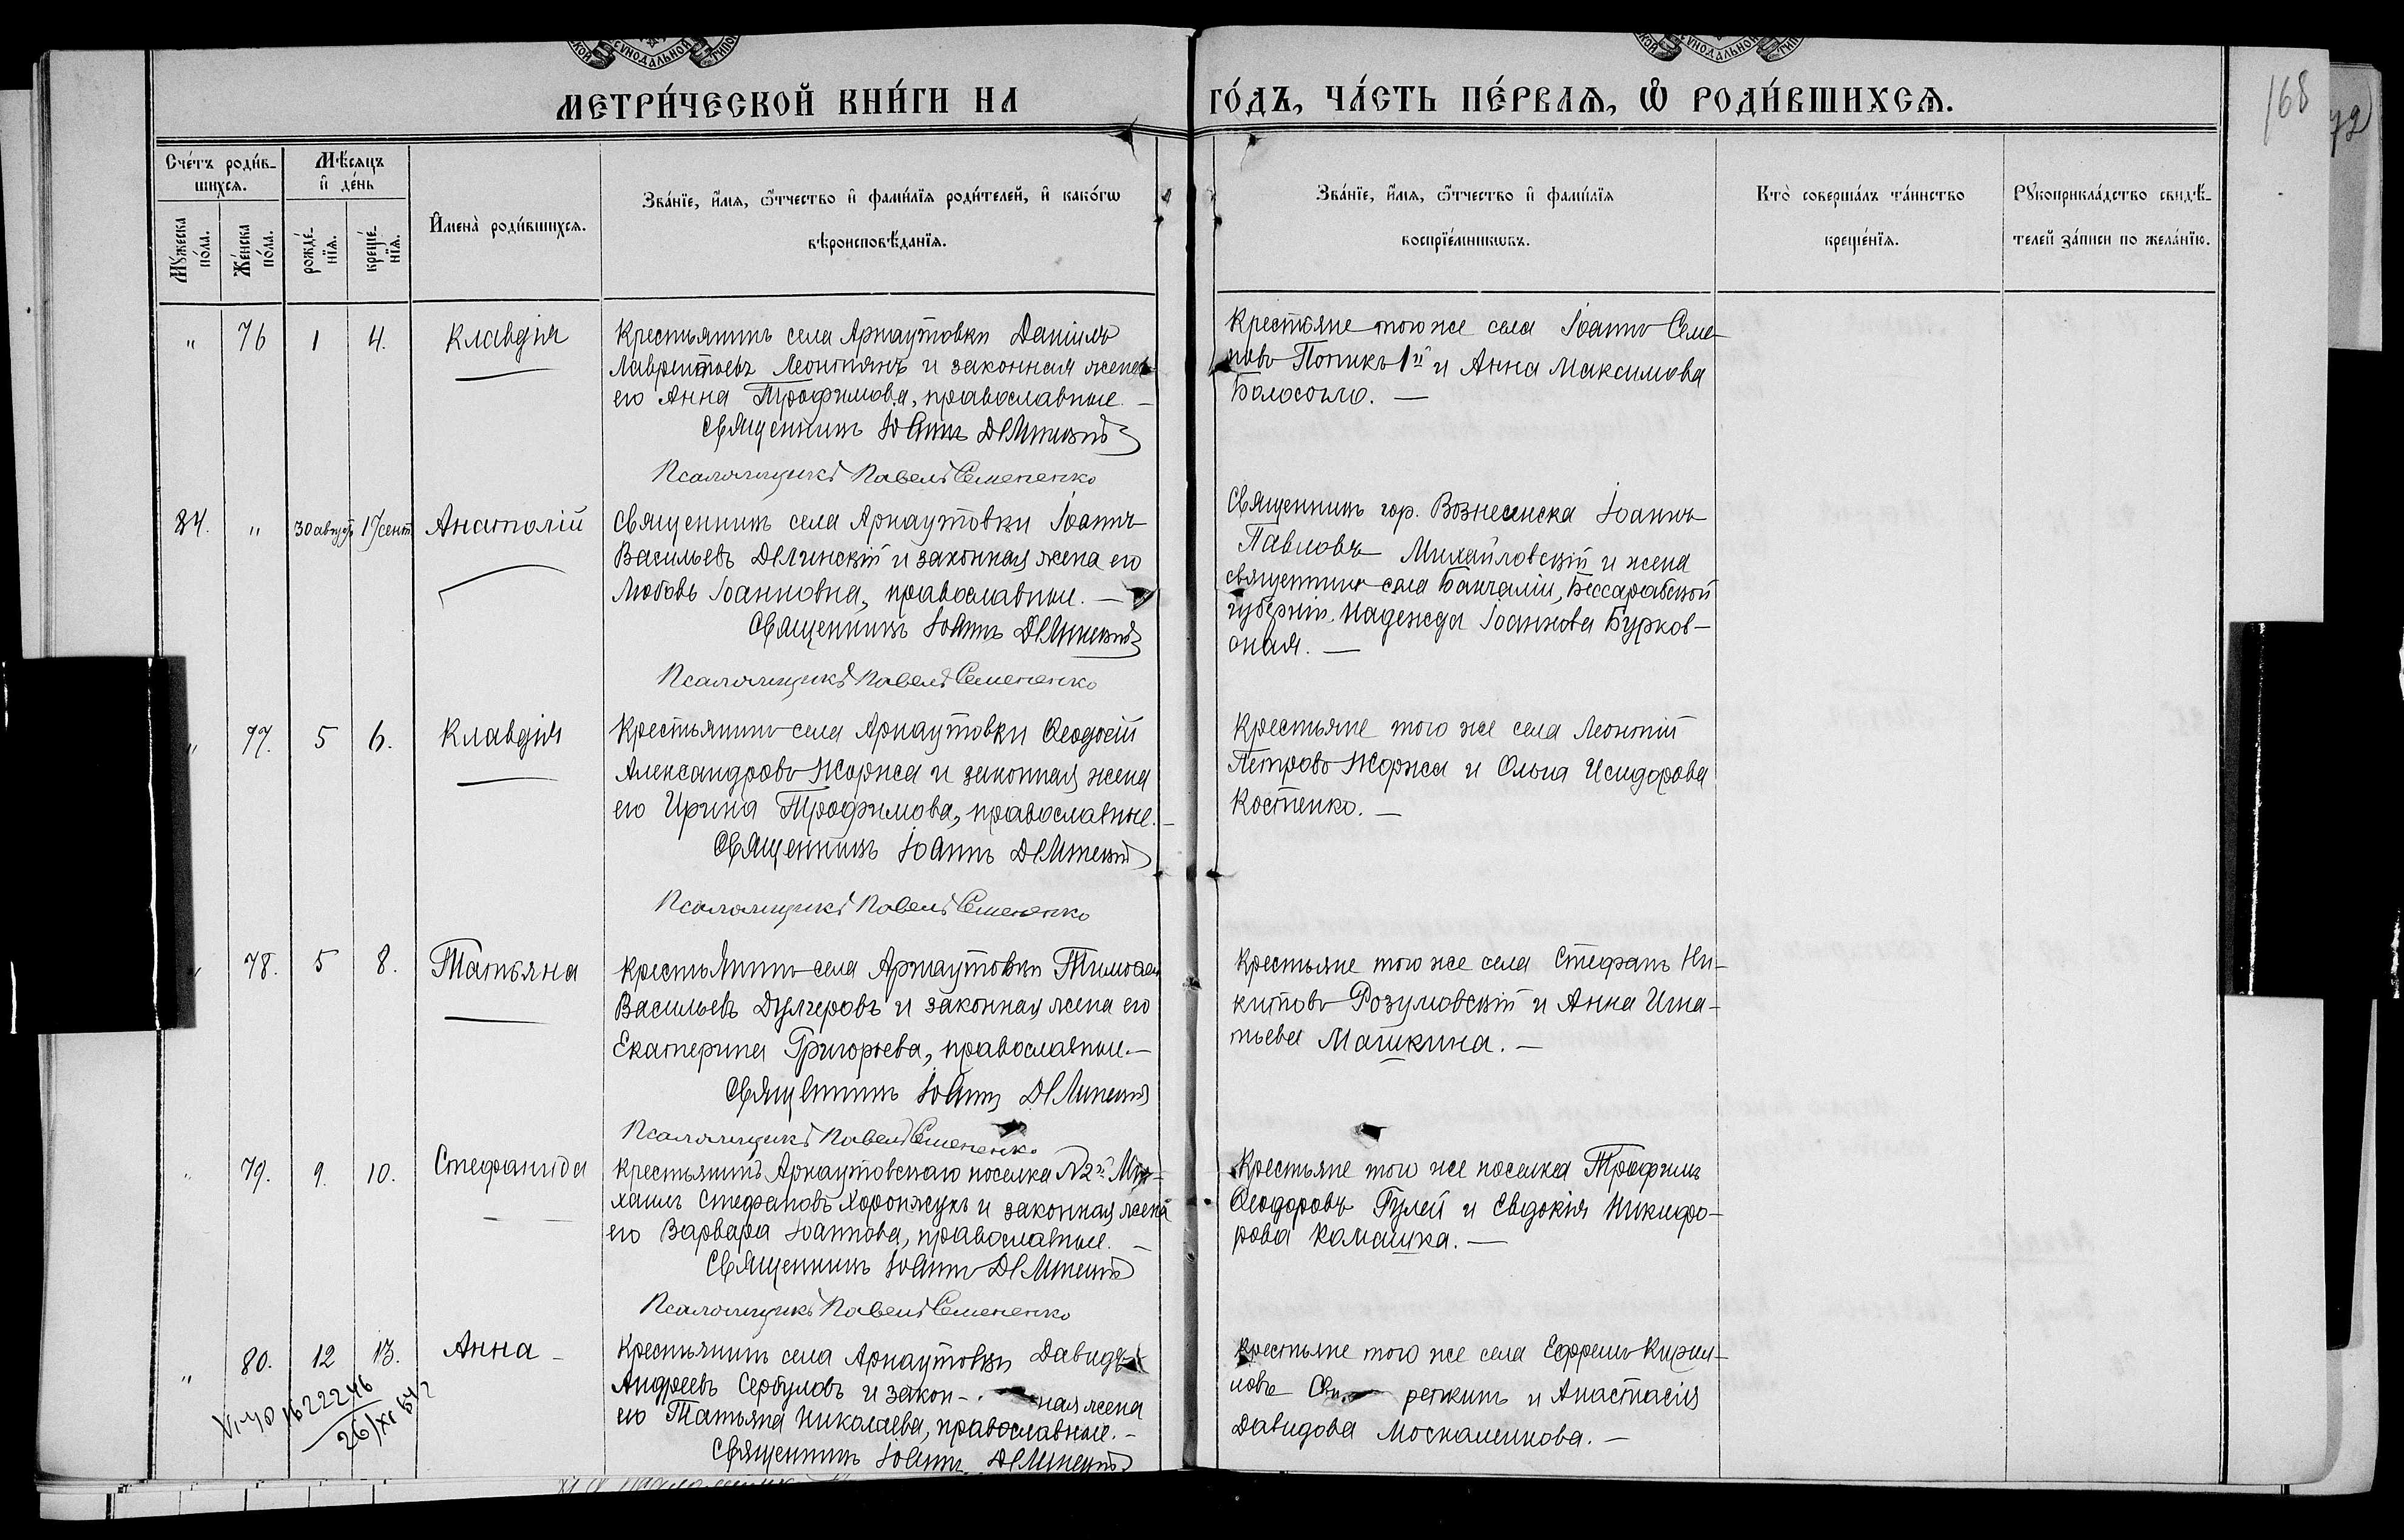 168
МЕТРИ́ЧЕСКОЙ КНИ́ГИ НА ГО́ДЪ, ЧА́СТЬ ПЕ́РВАѦ, Ѡ҆ РОДИ́ВШИХСѦ.
Сче́тъ роди́в-
шихсѧ.
Мꙋ́жеска по́ла.
Же́нска по́ла.
Мѣ́сѧцъ
и҆ де́нь
рожде́-
нїѧ.
креще́-
нїѧ.
И҆мена̀ роди́вшихсѧ.
Зва́нїе, и҆́мѧ, ѻ҆́тчество и҆ фами́лїѧ роди́телей, и҆ како́гѡ
вѣроисповѣ́данїѧ.
Зва́нїе, и҆́мѧ, ѻ҆́тчество и҆ фами́лїѧ
воспрїе́мникѡвъ.
Кто̀ соверша́лъ та́инство
креще́нїѧ.
Рꙋкоприкла́дство свидѣ́-
телей за́писи по жела́нїю.
" 76 1 4. Клавдія
Крестьянинъ села Арнаутовки Даніилъ
Лаврентьевъ Леонтянъ и законная жена
его Анна Трофимова, православные. —
Священникъ Іоаннъ Делинскій
Псаломщикъ Павелъ Семененко
Крестьяне того же села Іоаннъ Семе-
новъ Попикъ 1й и Анна Максимова
Балосогло. —
84. " 30 август 17 сент. Анатолій
Священникъ села Арнаутовки Іоаннъ
Васильевъ Делинскій и законная жена его
Любовь Іоанновна, православные. —
Священникъ Іоаннъ Делинскій
Псаломщикъ Павелъ Семененко
Священникъ гор. Вознесенска Іоаннъ
Павловъ Михайловскій и жена
священника села Банчаліи, Бессарабской
губерніи, Надежда Іоаннова Бурков-
ская. —
" 77. 5 6. Клавдія
Крестьянинъ села Арнаутовки Ѳеодосій
Александровъ Жоржа и законная жена
его Ирина Трофимова, православные. —
Священникъ Іоаннъ Делинскій
Псаломщикъ Павелъ Семененко
Крестьяне того же села Леонтій
Петровъ Жоржа и Ольга Исидорова
Костенко. —
" 78. 5 8. Татьяна
Крестьянинъ села Арнаутовки Тимоѳей
Васильевъ Дулгеровъ и законная жена его
Екатерина Григорьева, православные. —
Священникъ Іоаннъ Делинскій
Псаломщикъ Павелъ Семененко
Крестьяне того же села Стефанъ Ни-
китовъ Розумовскій и Анна Игна-
тьева Машкина. —
" 79. 9. 10. Стефанида
Крестьянинъ Арнаутовскаго поселка №2й Ми-
хаилъ Стефановъ Хоронжукъ и законная жена
его Варвара Іоаннова, православные. —
Священникъ Іоаннъ Делинскій
Псаломщикъ Павелъ Семененко
Крестьяне того же поселка Трофимъ
Ѳеодоровъ Гулей и Евдокія Никифо-
рова Камашка. —
" 80. 12 13. Анна
Крестьянинъ села Арнаутовки Давидъ
Андреевъ Сербуловъ и закон- ная жена
его Татьяна Николаева, православные. —
Священникъ Іоаннъ Делинскій
Крестьяне того же села Ефремъ Кирил-
ловъ и Анастасія
Давидова Москаленкова. —